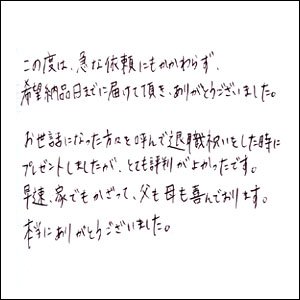 この度は、急な依頼にもかかわらず、
希望納品日までに届けて頂き、ありがとうございました。
お世話になった方々を呼んで退職祝いをした時に
プレゼントしましたが、とても評判がよかったです。
早速、家でもかざって、父も母も喜んでおります。
本当にありがとうございました。